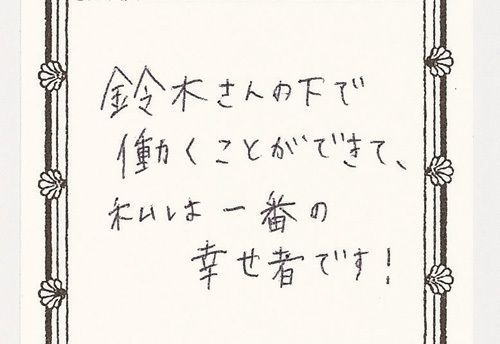 鈴木さんの下で
働くことができて、
私は一番の
幸せ者です!